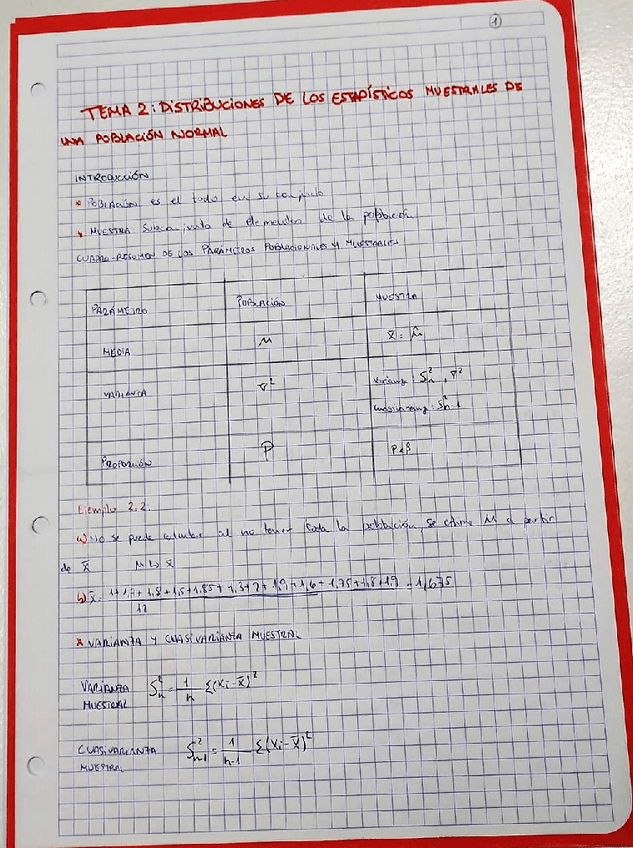 1
TEMA 2: DISTRIBUCIONES DE LOS ESTADÍSTICOS MUESTRALES DE
UNA POBLACIÓN NORMAL
INTRODUCCIÓN
* POBLACIÓN es el todo en su conjunto
* MUESTRA: Subconjunto de elementos de la población
CUADRO-RESUMEN DE LOS PARÁMETROS POBLACIONALES Y MUESTRALES
PARÁMETRO POBLACIÓN MUESTRA
MEDIA μ x̄ = μ̂
VARIANZA σ² varianza: Sₙ², σ̂²
cuasivarianza: S²ₙ₋₁
PROPORCIÓN P
Ejemplo 2.2.
a) No se puede calcular al no tener toda la población, se estima μ a partir
de x̄ μ → x̄
b) x̄ = 1,8 + 1,5 + 1,85 + 1,9 + 1,6 + 1,75 + 1,8 + 1,9 = 1,675
12
* VARIANZA Y CUASIVARIANZA MUESTRAL
VARIANZA Sₙ² = 1/n Σ(xᵢ - x̄)²
MUESTRAL
CUASIVARIANZA S²ₙ₋₁ = 1/n-1 Σ(xᵢ - x̄)²
MUESTRAL